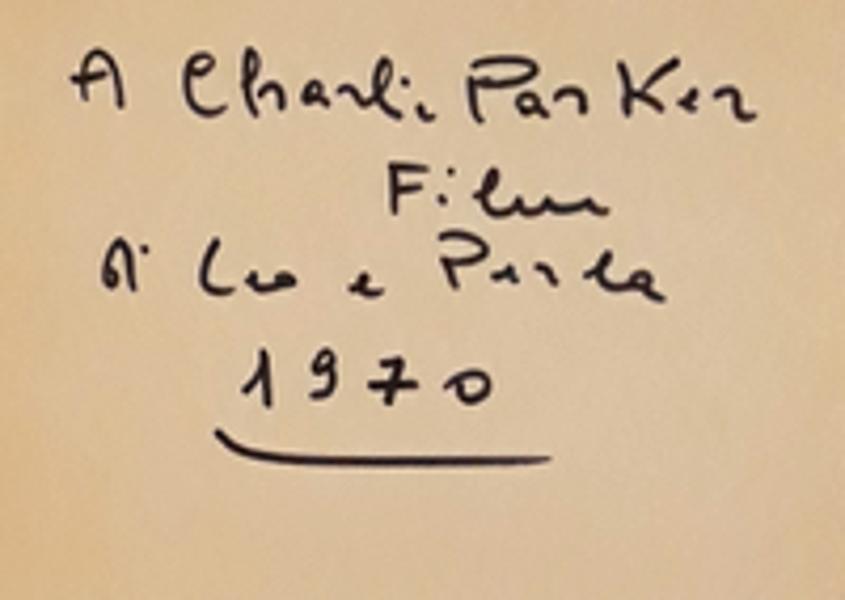 A Charlie Parker
Film
di Leo e Perla
1970